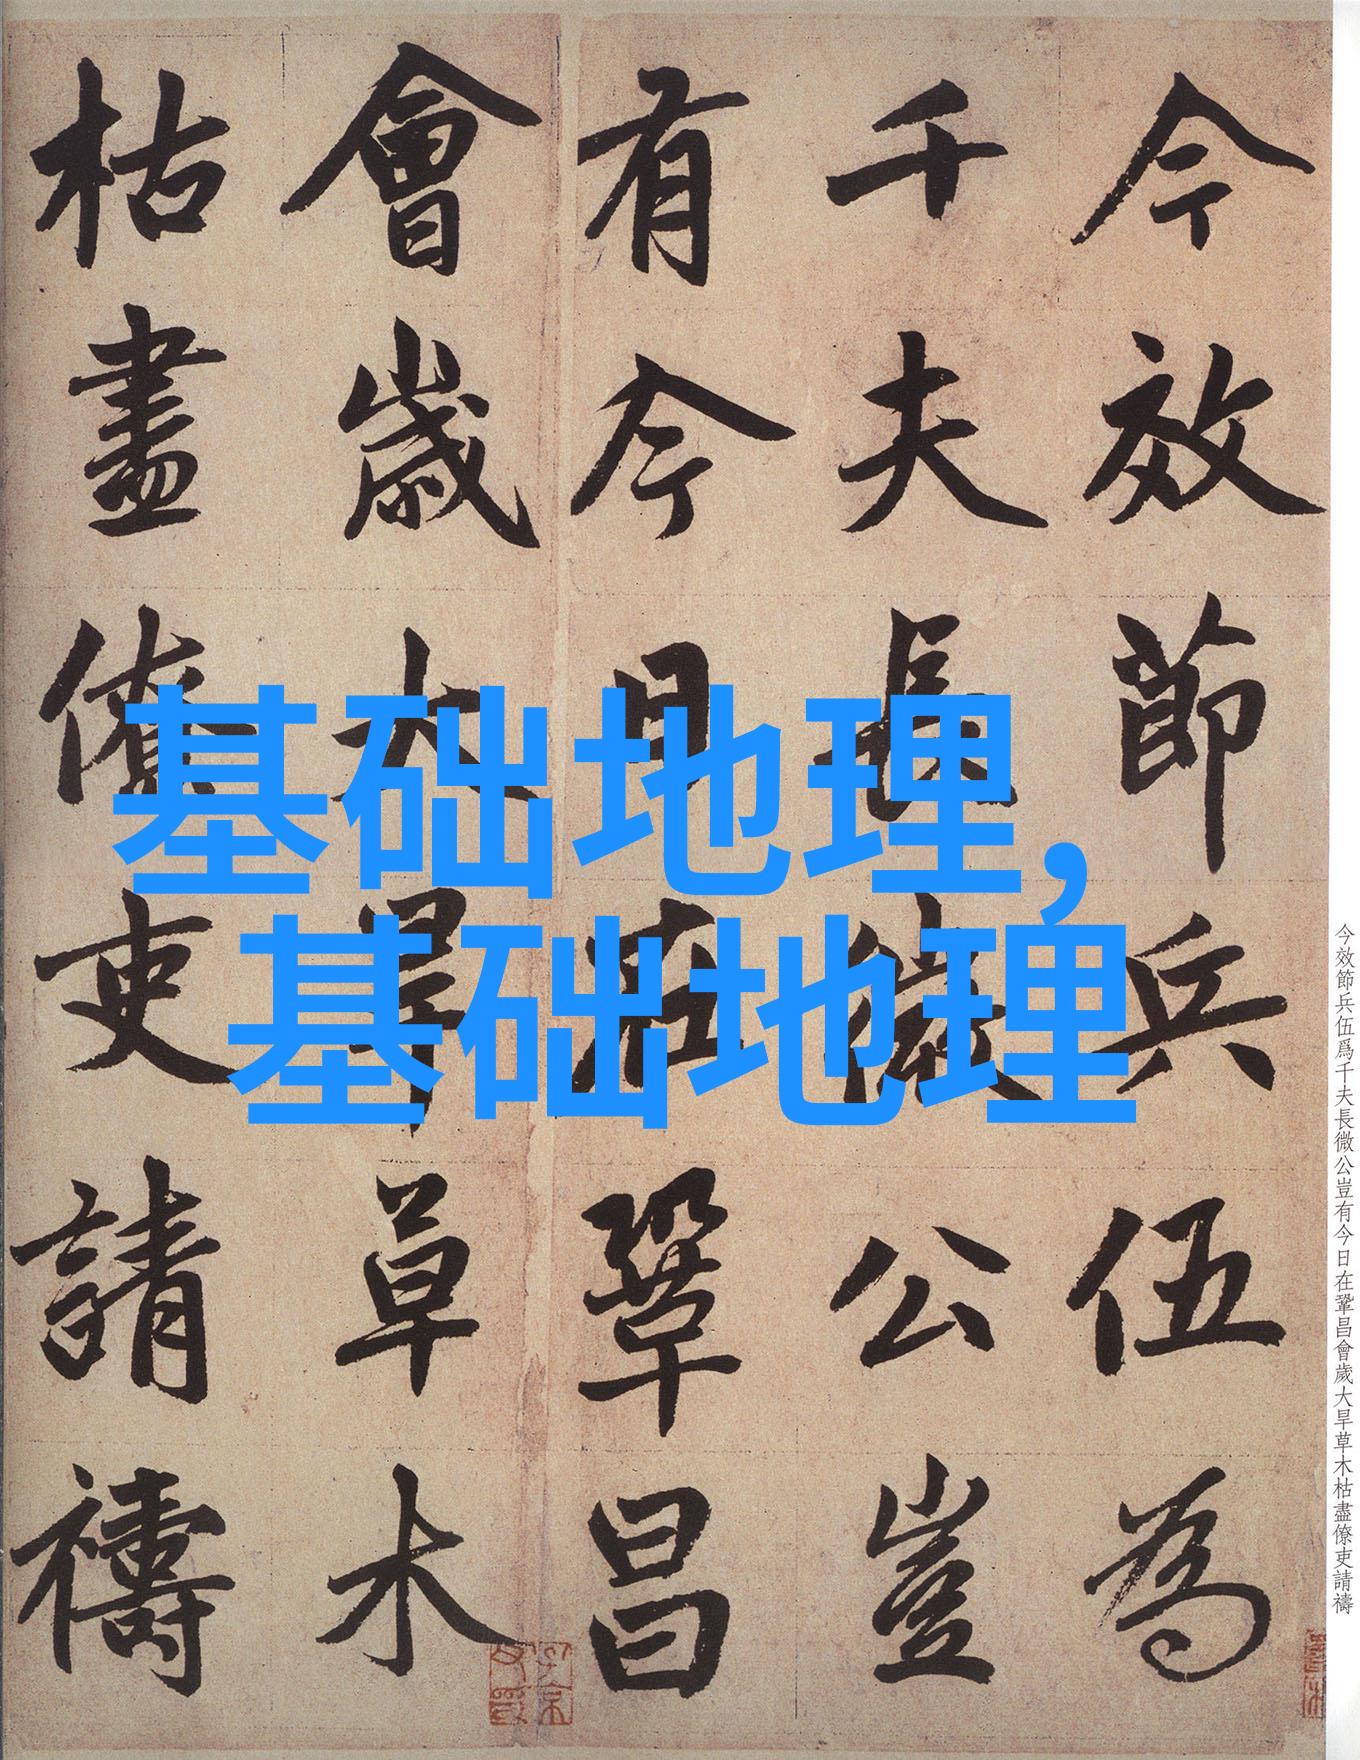 今效節兵伍為
千夫長微公豈
有今日在鞏昌
會歲大旱草木
枯盡僚吏請禱
基础地理,
基础地理
今效節兵伍爲千夫長微公豈有今日在鞏昌會歲大旱草木枯盡僚吏請禱